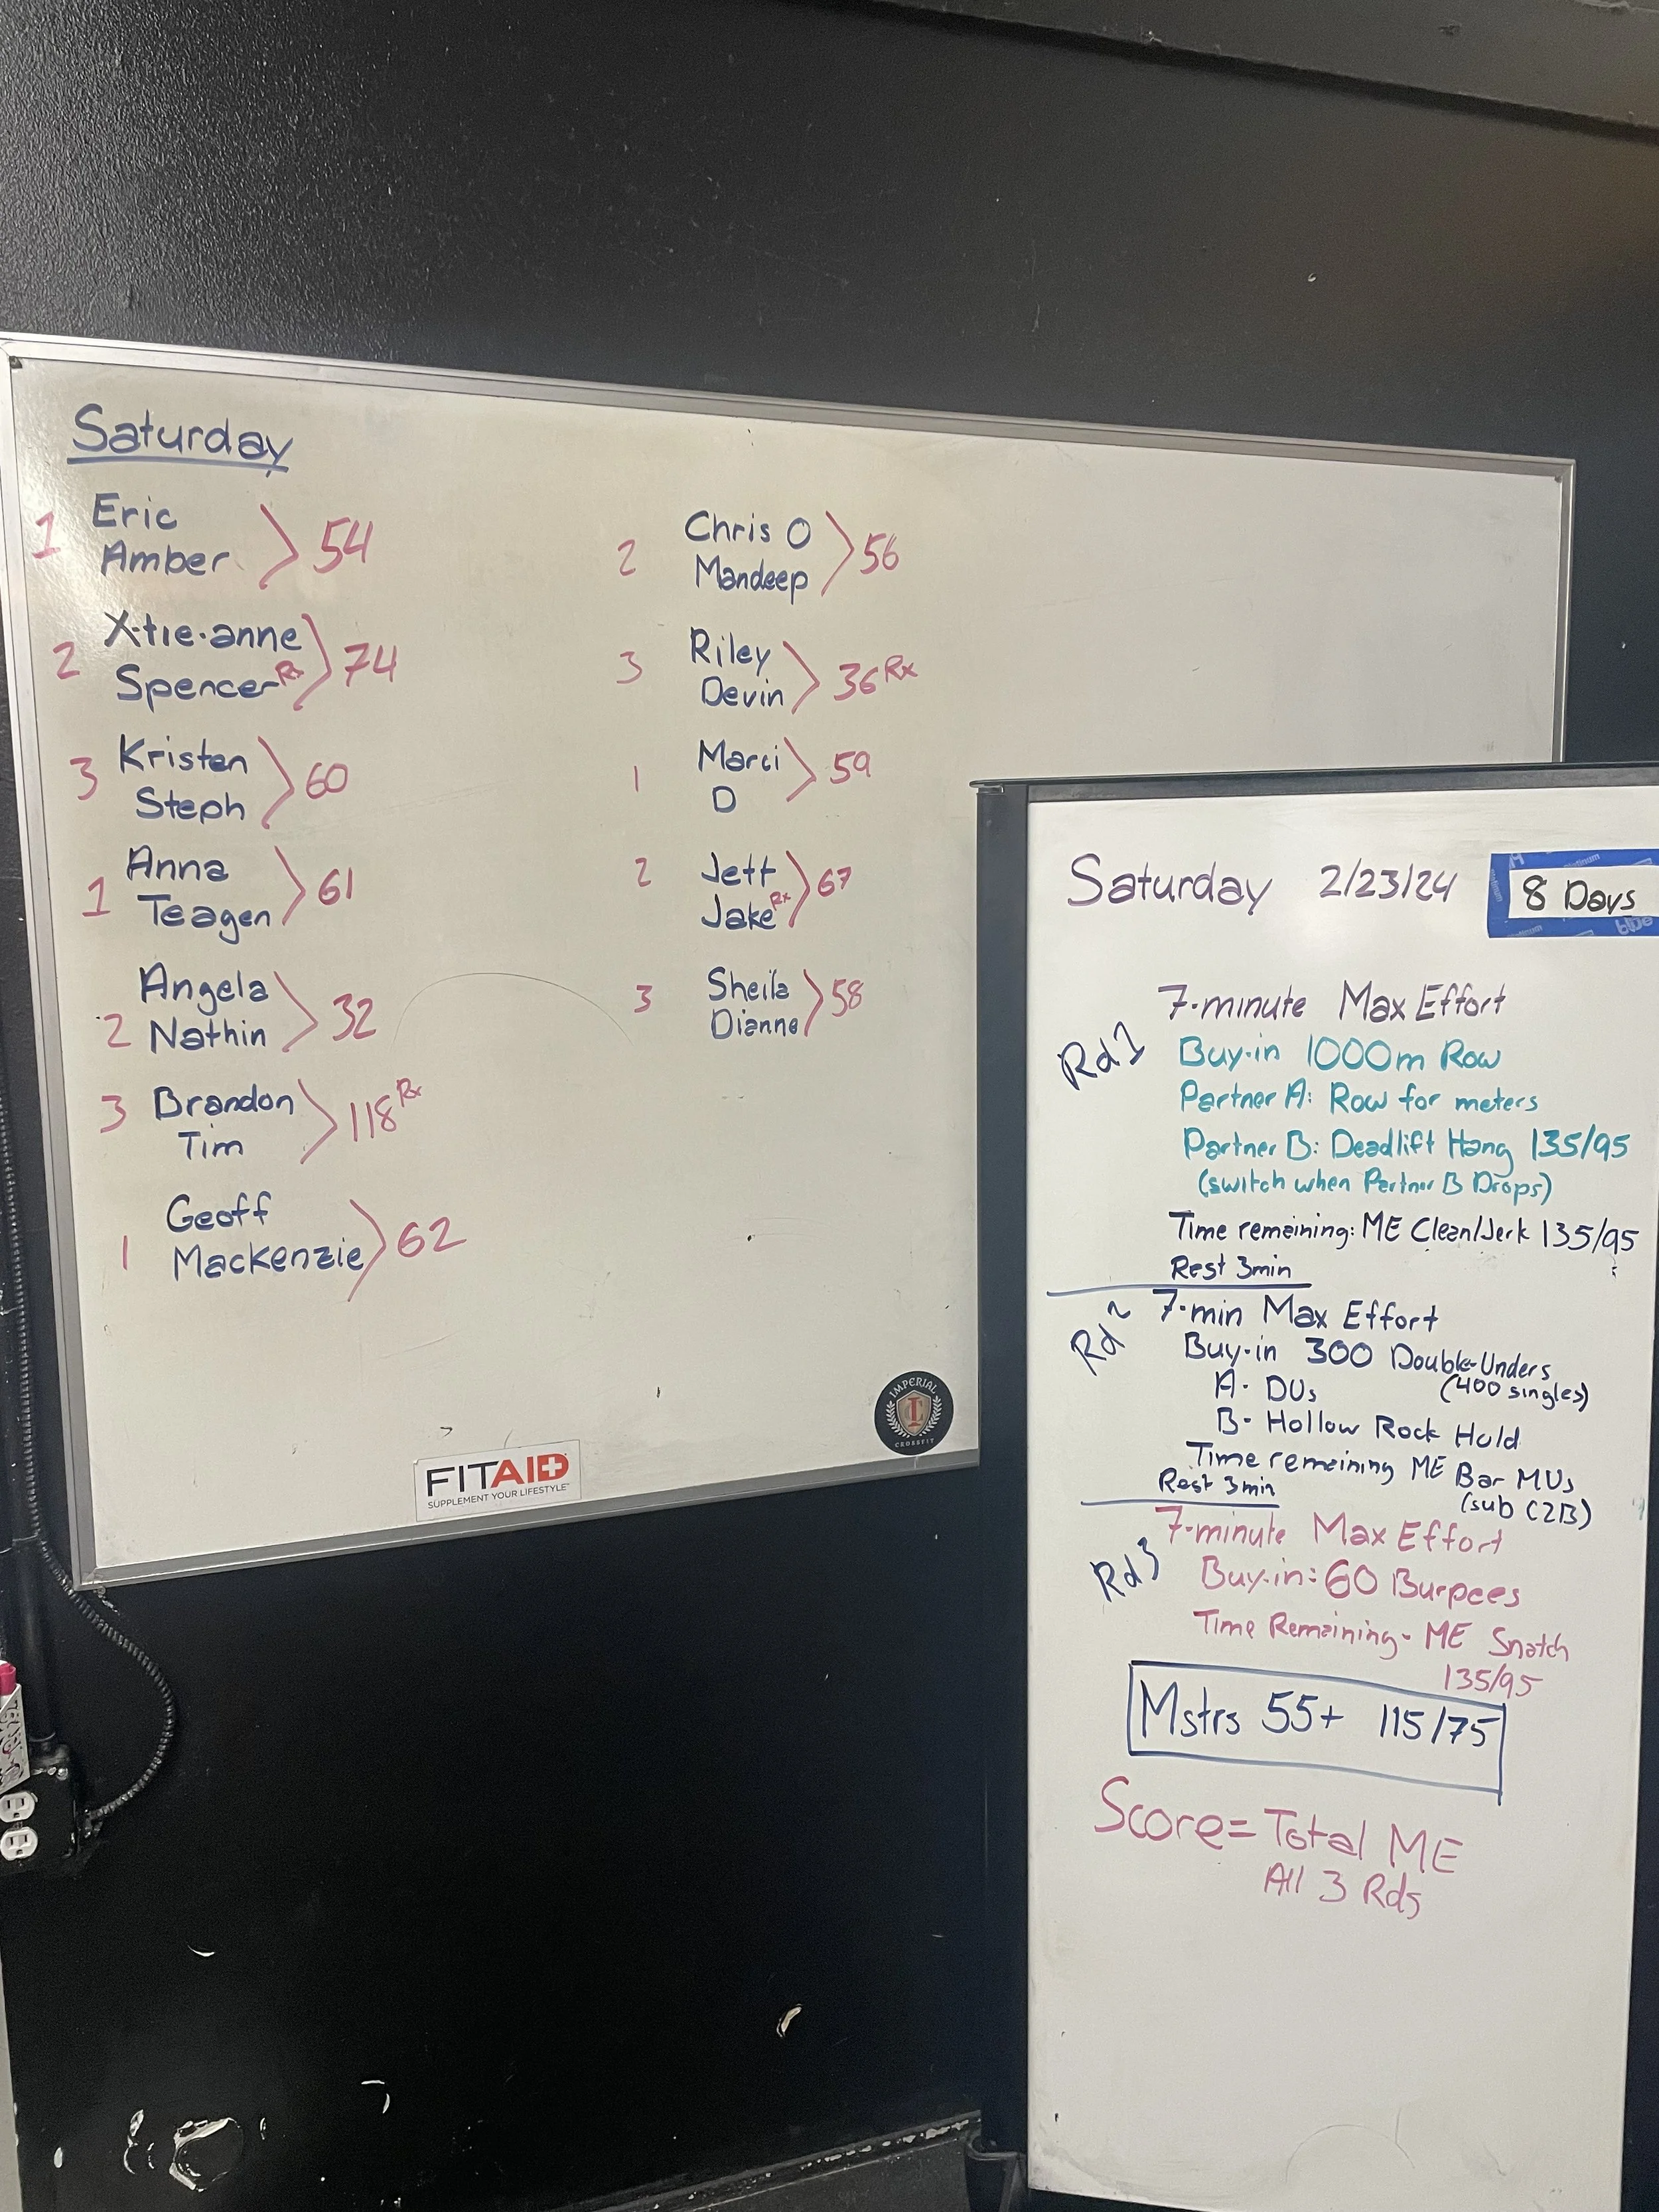 Saturday
1 Eric
Amber 54
2 X-tie-anne
Spencer Rx 74
3 Kristen
Steph 60
1 Anna
Teagen 61
2 Angela
Nathin 32
3 Brandon
Tim 118 Rx
1 Geoff
Mackenzie 62
2 Chris O
Mandeep 56
3 Riley
Devin 36 Rx
1 Marci
D 59
2 Jett
Jake Rx 67
3 Sheila
Dianne 58
FITAID
SUPPLEMENT YOUR LIFESTYLE
IMPERIAL
CROSSFIT
Saturday 2/23/24
8 Days
7-minute Max Effort
Rd 1
Buy-in 1000m Row
Partner A: Row for meters
Partner B: Deadlift Hang 135/95
(switch when Partner B Drops)
Time remaining: ME Clean/Jerk 135/95
Rest 3min
Rd 2
7-min Max Effort
Buy-in 300 Double-Unders
(400 singles)
A- DUs
B- Hollow Rock Hold
Time remaining ME Bar MUs
(sub C2B)
Rest 3min
Rd 3
7-minute Max Effort
Buy-in: 60 Burpees
Time Remaining- ME Snatch
135/95
Mstrs 55+ 115/75
Score= Total ME
All 3 Rds